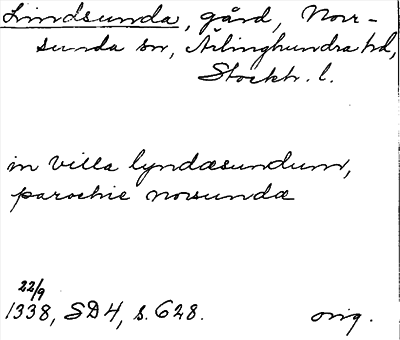 Lindsunda, gård, Norr-
sunda sn, Ärlinghundra hd,
Stockh. l.
in villa lyndæsundum,
parochie norsundæ
22/9
1338, SD4, s. 628. orig.